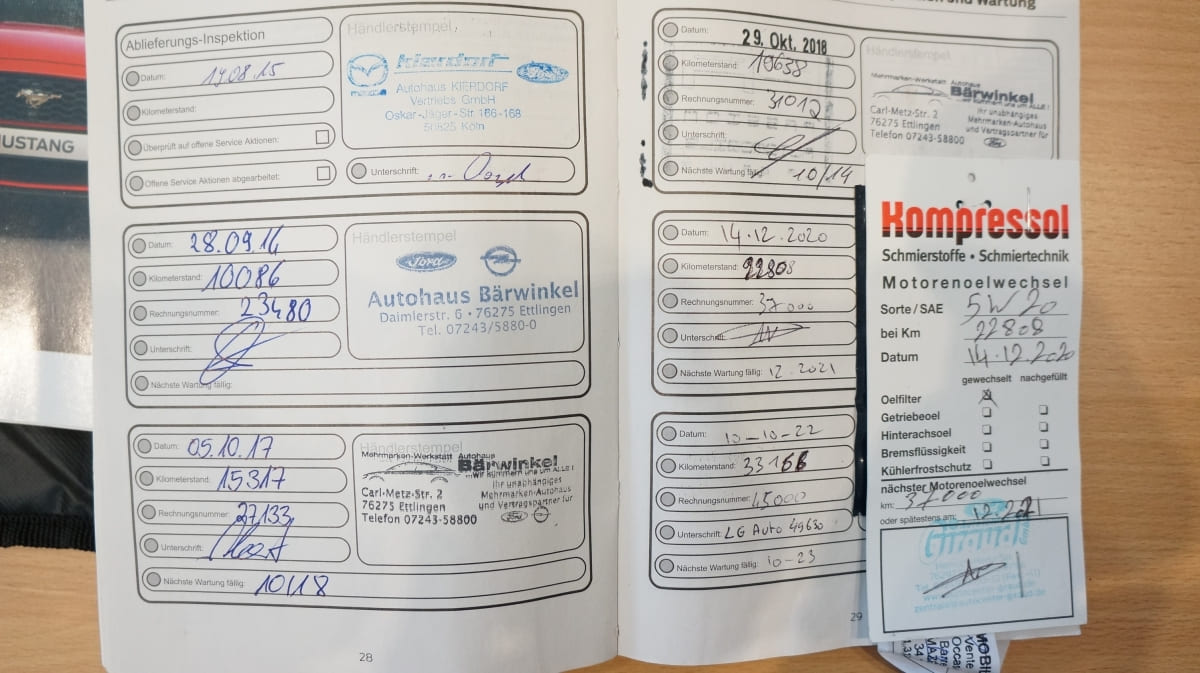 MUSTANG
Ablieferungs-Inspektion
Datum: 14.08.15
Kilometerstand:
Überprüft auf offene Service Aktionen:
Offene Service Aktionen abgearbeitet:
Händlerstempel
mazda Kierdorf Ford
Autohaus KIERDORF
Vertriebs GmbH
Oskar-Jäger-Str. 166-168
50825 Köln
Unterschrift:
Datum: 28.09.16
Kilometerstand: 10086
Rechnungsnummer: 23480
Unterschrift:
Nächste Wartung fällig:
Händlerstempel
Ford
Autohaus Bärwinkel
Daimlerstr. 6 • 76275 Ettlingen
Tel. 07243/5880-0
Datum: 05.10.17
Kilometerstand: 15317
Rechnungsnummer: 27133
Unterschrift:
Nächste Wartung fällig: 10/18
Händlerstempel
Mehrmarken-Werkstatt Autohaus
Bärwinkel
...wir kümmern uns um ALLE!
Carl-Metz-Str. 2
76275 Ettlingen
Telefon 07243-58800
Ihr unabhängiges
Mehrmarken-Autohaus
und Vertragspartner für
Ford
28
und Wartung
Datum: 29. Okt. 2018
Kilometerstand: 19638
Rechnungsnummer: 31012
Unterschrift:
Nächste Wartung fällig: 10/19
Händlerstempel
Mehrmarken-Werkstatt Autohaus
Bärwinkel
...wir kümmern uns um ALLE!
Carl-Metz-Str. 2
76275 Ettlingen
Telefon 07243-58800
Ihr unabhängiges
Mehrmarken-Autohaus
und Vertragspartner für
Ford
Datum: 14.12.2020
Kilometerstand: 22808
Rechnungsnummer: 37000
Unterschrift:
Nächste Wartung fällig: 12.2021
Datum: 10-10-22
Kilometerstand: 33166
Rechnungsnummer: 45000
Unterschrift: LG Auto 49630
Nächste Wartung fällig: 10-23
29
Kompressol
Schmierstoffe • Schmiertechnik
Motorenoelwechsel
Sorte / SAE 5W20
bei Km 22808
Datum 14.12.2020
gewechselt nachgefüllt
Oelfilter
Getriebeoel
Hinterachsoel
Bremsflüssigkeit
Kühlerfrostschutz
nächster Motorenoelwechsel
km: 37000
oder spätestens am: 12.2021